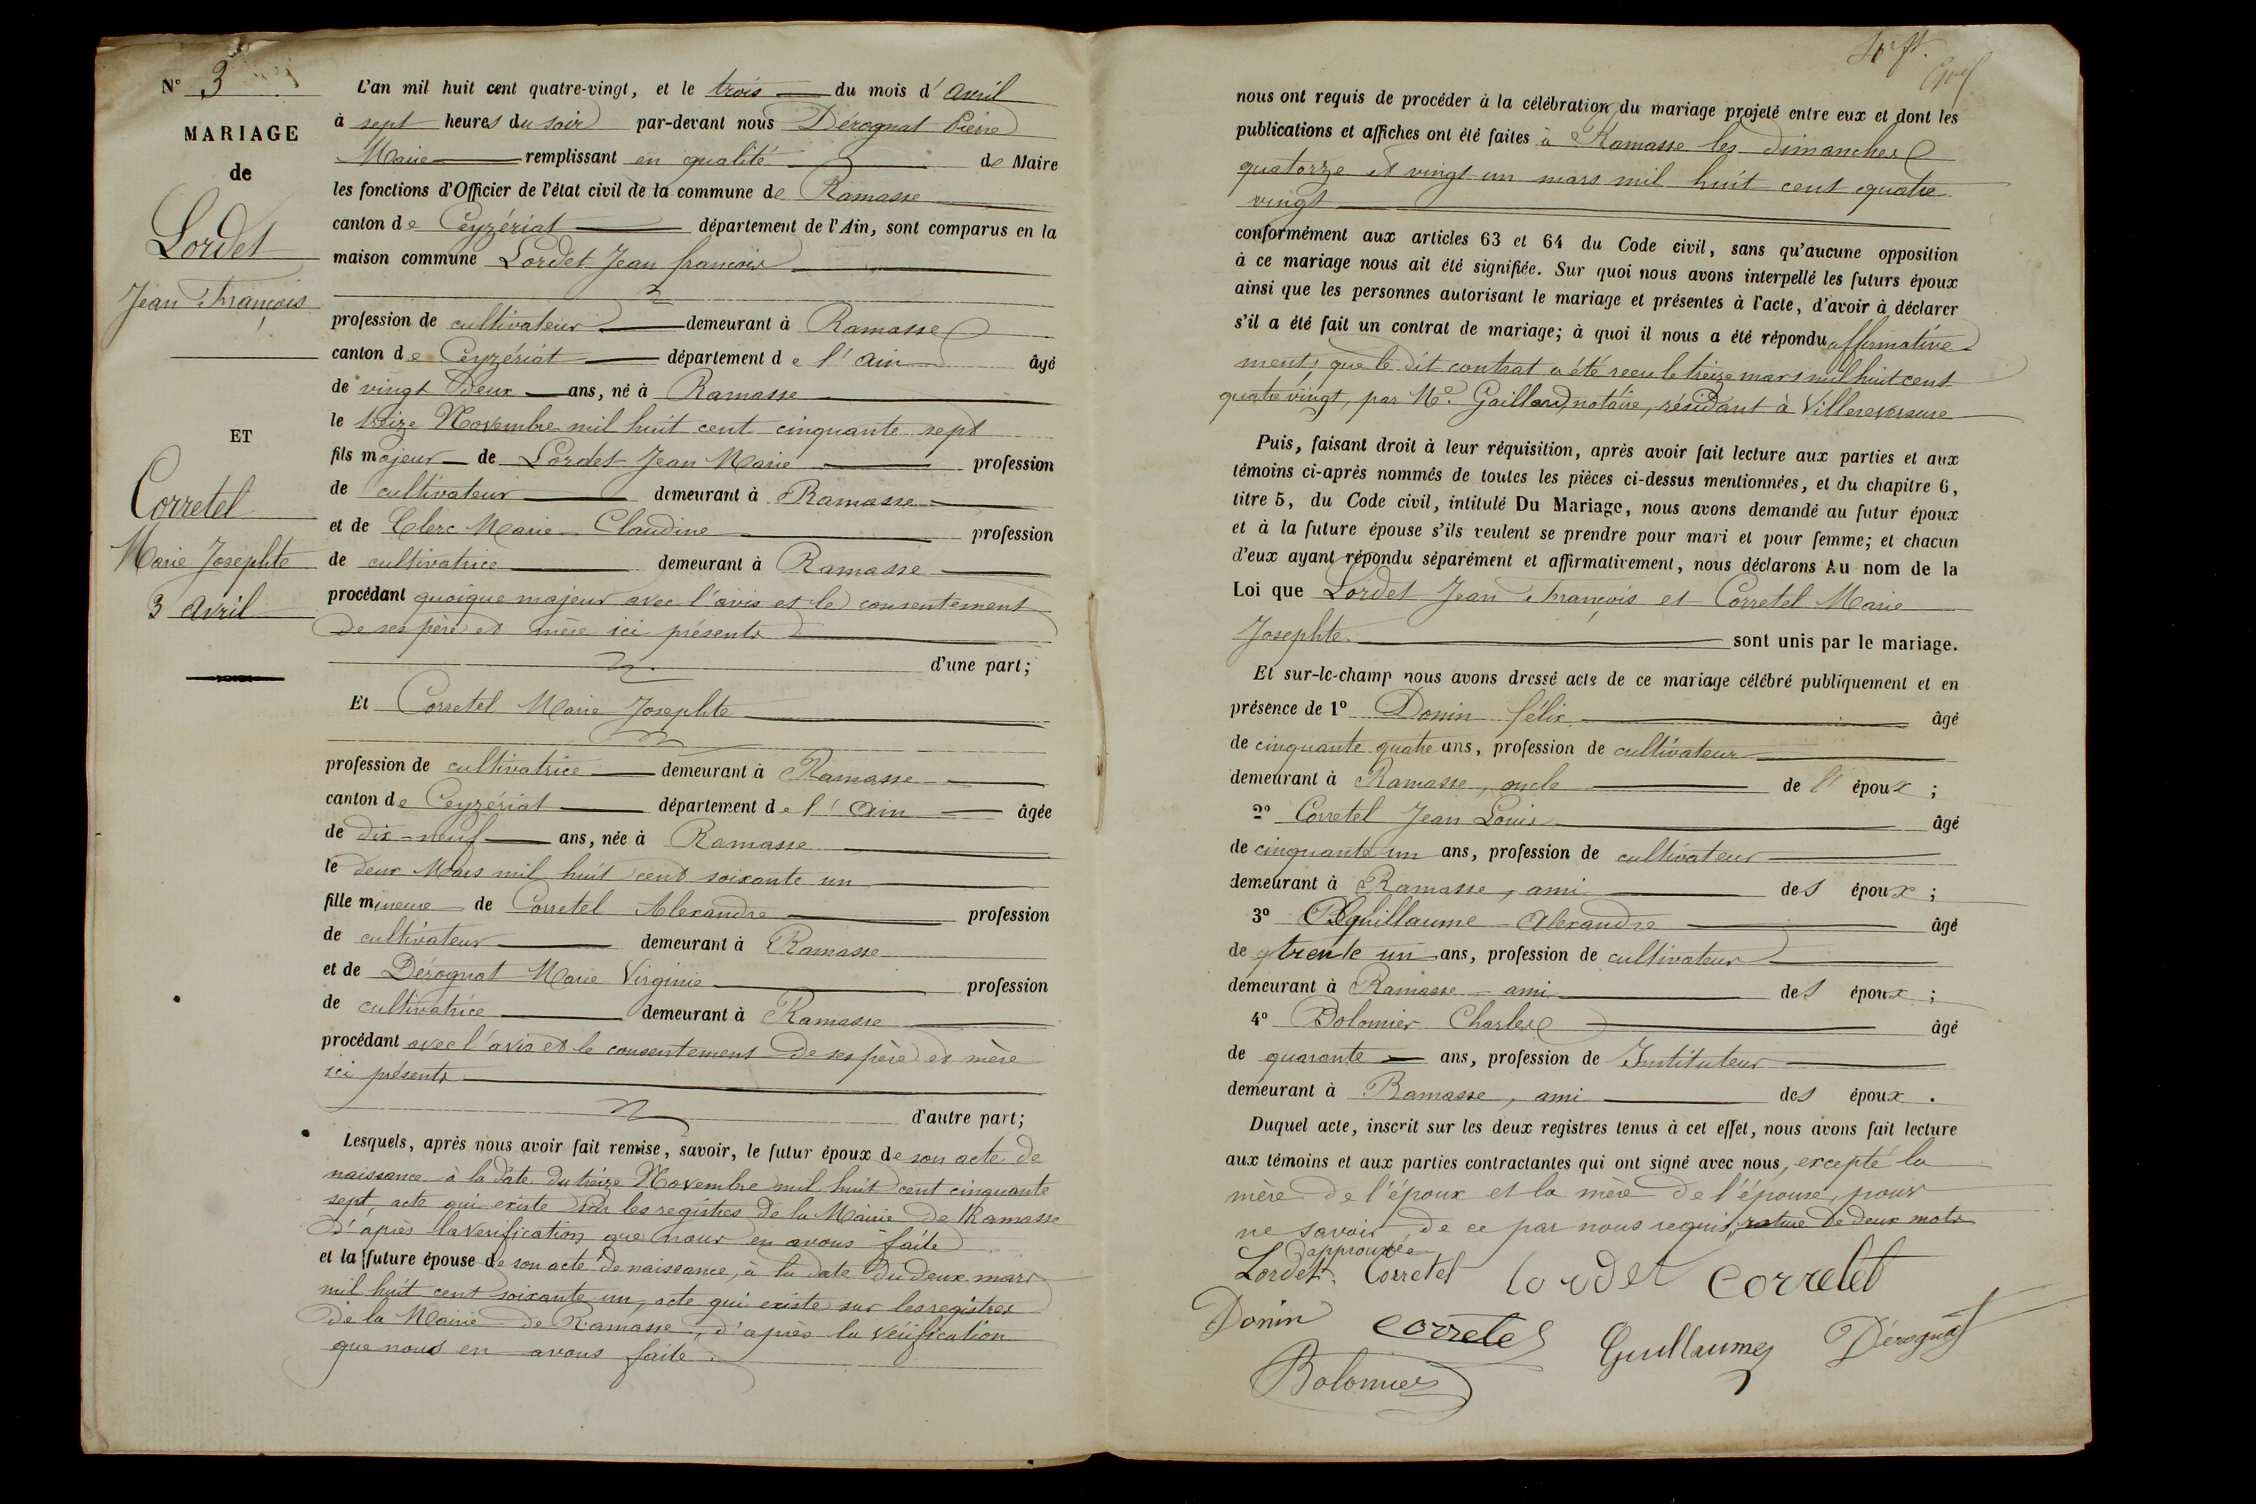 N° 3
MARIAGE
de
Lordet
Jean François
ET
Corretel
Marie Josephte
3 Avril
L'an mil huit cent quatre-vingt, et le trois du mois d'avril
à sept heures du soir par-devant nous Dérognat Pierre
Marie remplissant en qualité de Maire
les fonctions d'Officier de l'état civil de la commune de Ramasse
canton de Ceyzériat département de l'Ain, sont comparus en la
maison commune Lordet Jean françois
profession de cultivateur demeurant à Ramasse
canton de Ceyzériat département de l'ain âgé
de vingt deux ans, né à Ramasse
le treize Novembre mil huit cent cinquante sept
fils majeur de Lordet Jean Marie profession
de cultivateur demeurant à Ramasse
et de Clerc Marie Claudine profession
de cultivatrice demeurant à Ramasse
procédant quoique majeur avec l'avis et le consentement
de ses père et mère ici présents
d'une part;
Et Corretel Marie Josephte
profession de cultivatrice demeurant à Ramasse
canton de Ceyzériat département de l'ain âgée
de dix-neuf ans, née à Ramasse
le deux Mars mil huit cent soixante un
fille mineure de Corretel Alexandre profession
de cultivateur demeurant à Ramasse
et de Dérognat Marie Virginie profession
de cultivatrice demeurant à Ramasse
procédant avec l'avis et le consentement de ses père et mère
ici présents
d'autre part;
Lesquels, après nous avoir fait remise, savoir, le futur époux de son acte de
naissance à la date du treize Novembre mil huit cent cinquante
sept, acte qui existe sur les registres de la Mairie de Ramasse
d'après la verification que nous en avons faite
et la future épouse de son acte de naissance, à la date du deux mars
mil huit cent soixante un, acte qui existe sur les registres
de la Mairie de Ramasse, d'après la vérification
que nous en avons faite.
nous ont requis de procéder à la célébration du mariage projeté entre eux et dont les
publications et affiches ont été faites à Ramasse les dimanches
quatorze et vingt-un mars mil huit cent quatre
vingt
conformément aux articles 63 et 64 du Code civil, sans qu'aucune opposition
à ce mariage nous ait été signifiée. Sur quoi nous avons interpellé les futurs époux
ainsi que les personnes autorisant le mariage et présentes à l'acte, d'avoir à déclarer
s'il a été fait un contrat de mariage; à quoi il nous a été répondu affirmative
ment, que le dit contrat a été recu le treize mars mil huit cent
quatre vingt, par Me. Gaillard, notaire, résidant à Villereversure
Puis, faisant droit à leur réquisition, après avoir fait lecture aux parties et aux
témoins ci-après nommés de toutes les pièces ci-dessus mentionnées, et du chapitre 6,
titre 5, du Code civil, intitulé Du Mariage, nous avons demandé au futur époux
et à la future épouse s'ils veulent se prendre pour mari et pour femme; et chacun
d'eux ayant répondu séparément et affirmativement, nous déclarons Au nom de la
Loi que Lordet Jean François et Corretel Marie
Josephte sont unis par le mariage.
Et sur-le-champ nous avons dressé acte de ce mariage célébré publiquement et en
présence de 1° Donin félix âgé
de cinquante quatre ans, profession de cultivateur
demeurant à Ramasse, oncle de l'époux;
2° Corretel Jean Louis âgé
de cinquante un ans, profession de cultivateur
demeurant à Ramasse, ami des époux;
3° Guillaume Alexandre âgé
de trente un ans, profession de cultivateur
demeurant à Ramasse ami des époux;
4° Bolomier Charles âgé
de quarante ans, profession de Instituteur
demeurant à Ramasse, ami des époux.
Duquel acte, inscrit sur les deux registres tenus à cet effet, nous avons fait lecture
aux témoins et aux parties contractantes qui ont signé avec nous, excepté la
mère de l'époux et la mère de l'épouse, pour
ne savoir de ce par nous requis, rature de deux mots
approuvée
Lordet. Corretel Lordet Corretel
Donin Corretel Guillaume Dérognat
Bolomier